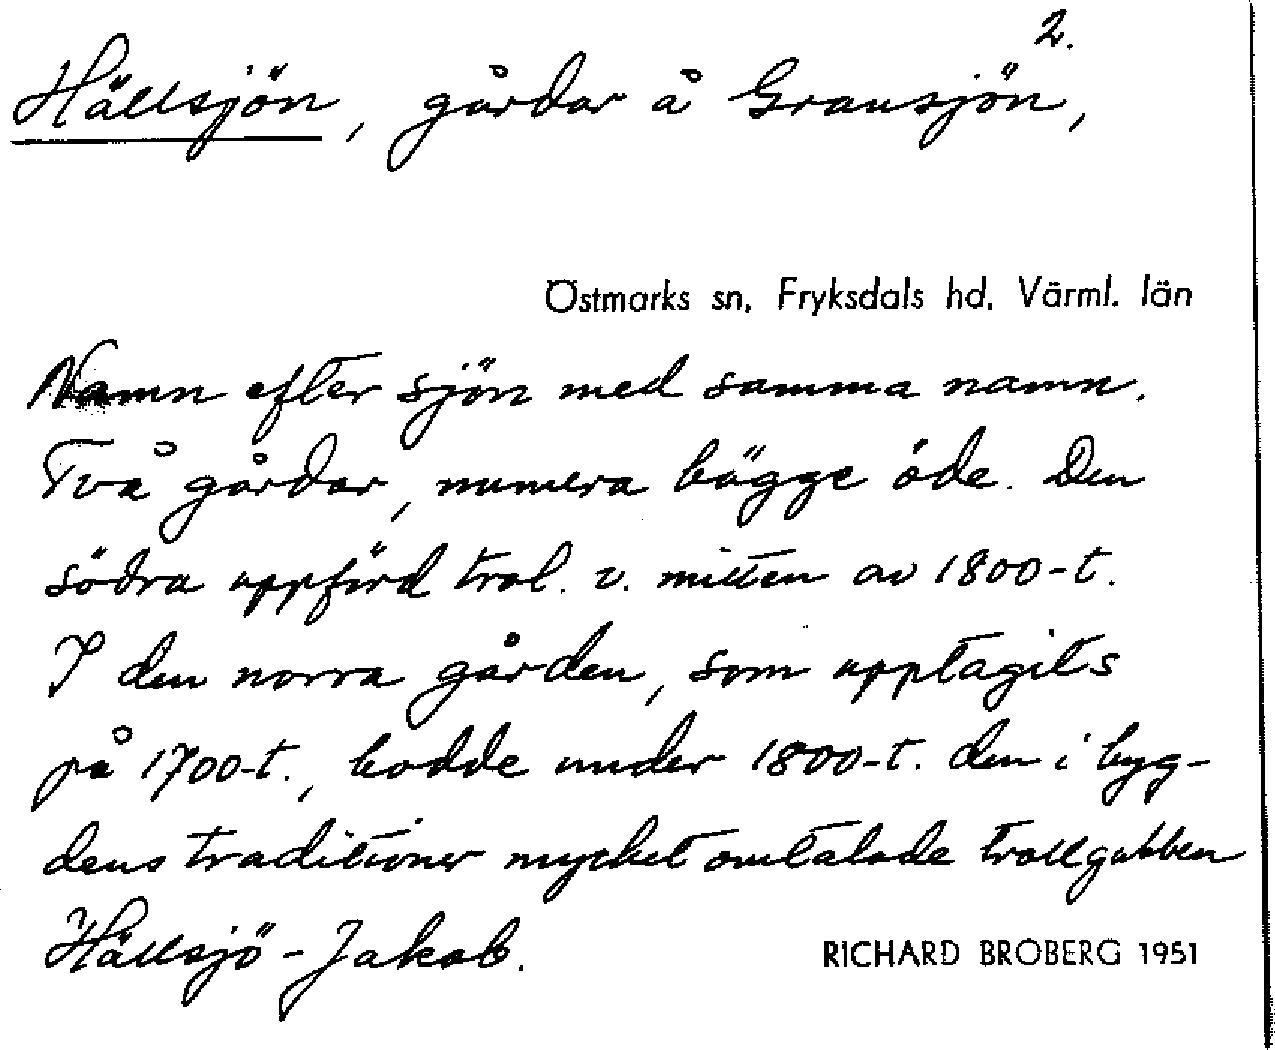 2.
Hällsjön, gårdar å Gransjön,
Östmarks sn, Fryksdals hd, Värml. län
Namn efter sjön med samma namn.
Två gårdar, numera bägge öde. Den
södra uppförd trol. v. mitten av 1800-t.
I den norra gården, som upptagits
på 1700-t., bodde under 1800-t. den i byg-
dens traditioner mycket omtalade trollgubben
Hällsjö-Jakob.
RICHARD BROBERG 1951